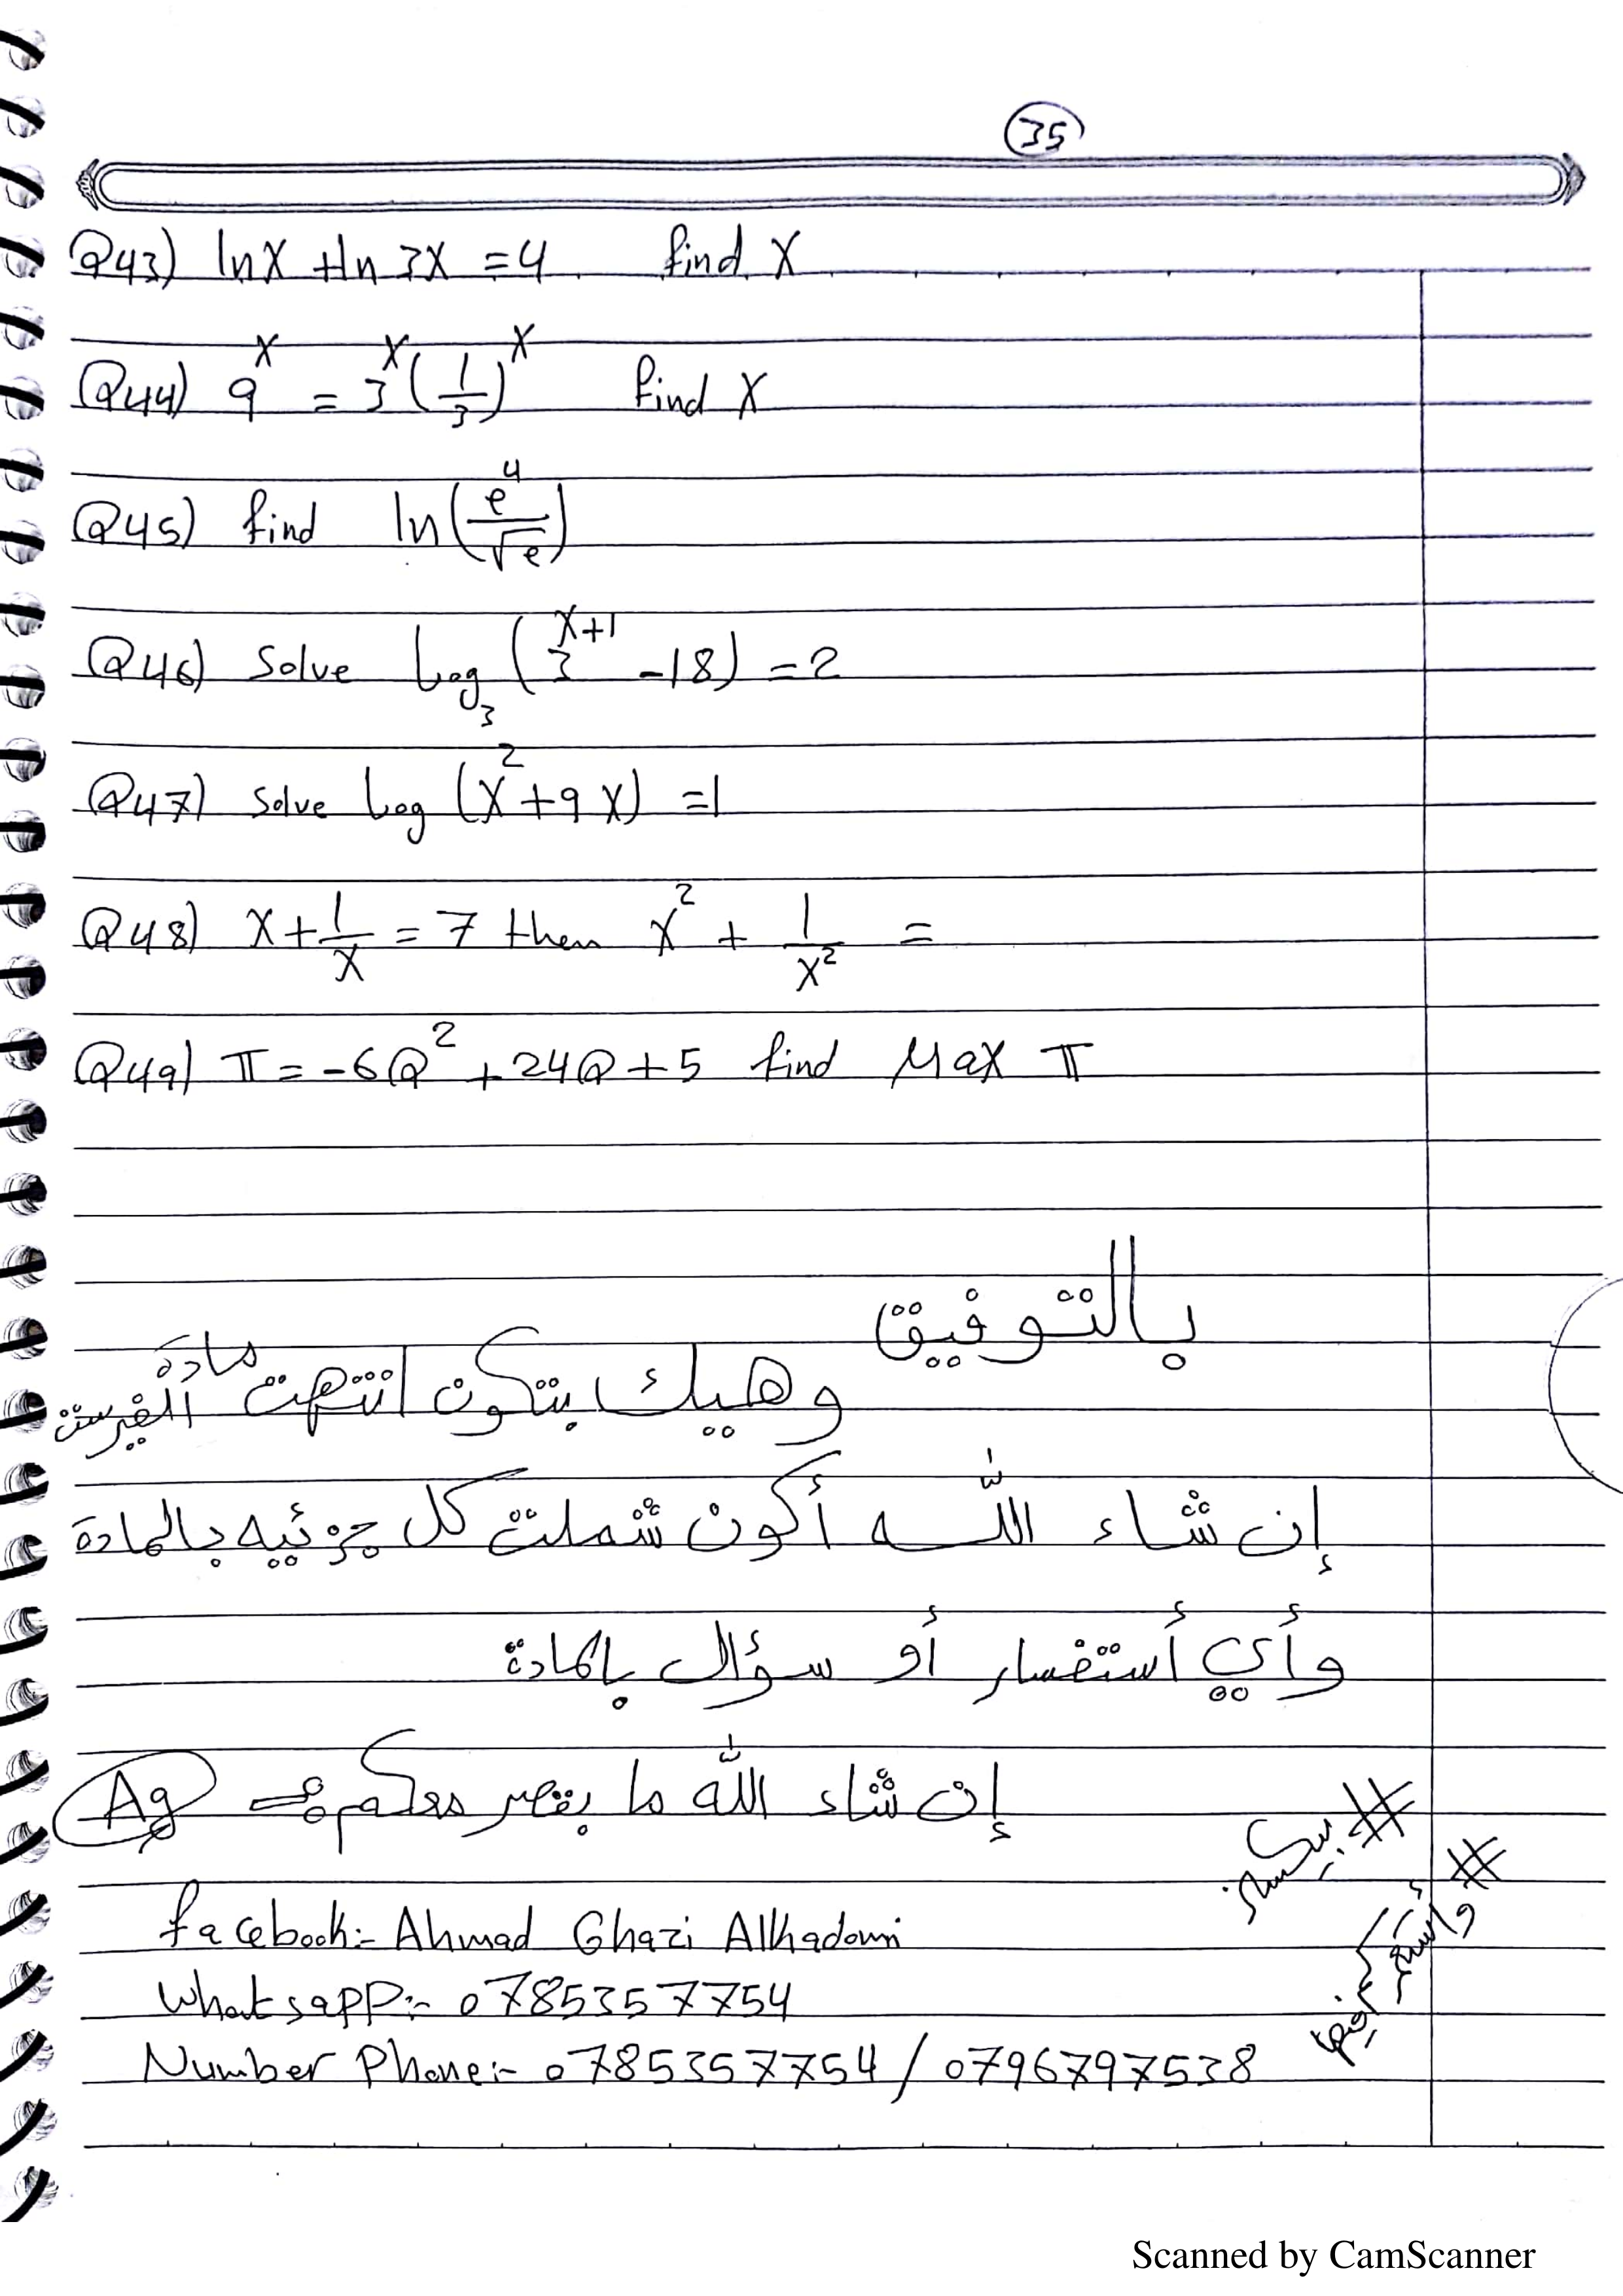 35
Q43) lnx + ln 3x = 4 find x
Q44) 9^x = 3^x (1/3)^x find x
Q45) find ln(e^4/√e)
Q46) Solve Log_3 (3^{x+1} - 18) = 2
Q47) Solve Log (x^2 + 9x) = 1
Q48) x + 1/x = 7 then x^2 + 1/x^2 =
Q49) π = -6Q^2 + 24Q + 5 find Max π
بالتوفيق
وهيك بتكون انتهت مادة الفيرست
إن شاء الله أكون شملت كل جزئيه بالمادة
وأي أستفسار أو سؤال بالمادة
إن شاء الله ما بقصر معكم
Ag
facebook:- Ahmad Ghazi Alkhadouri
Whatsapp:- 0785357754
Number Phone:- 0785357754 / 0796797538
Scanned by CamScanner